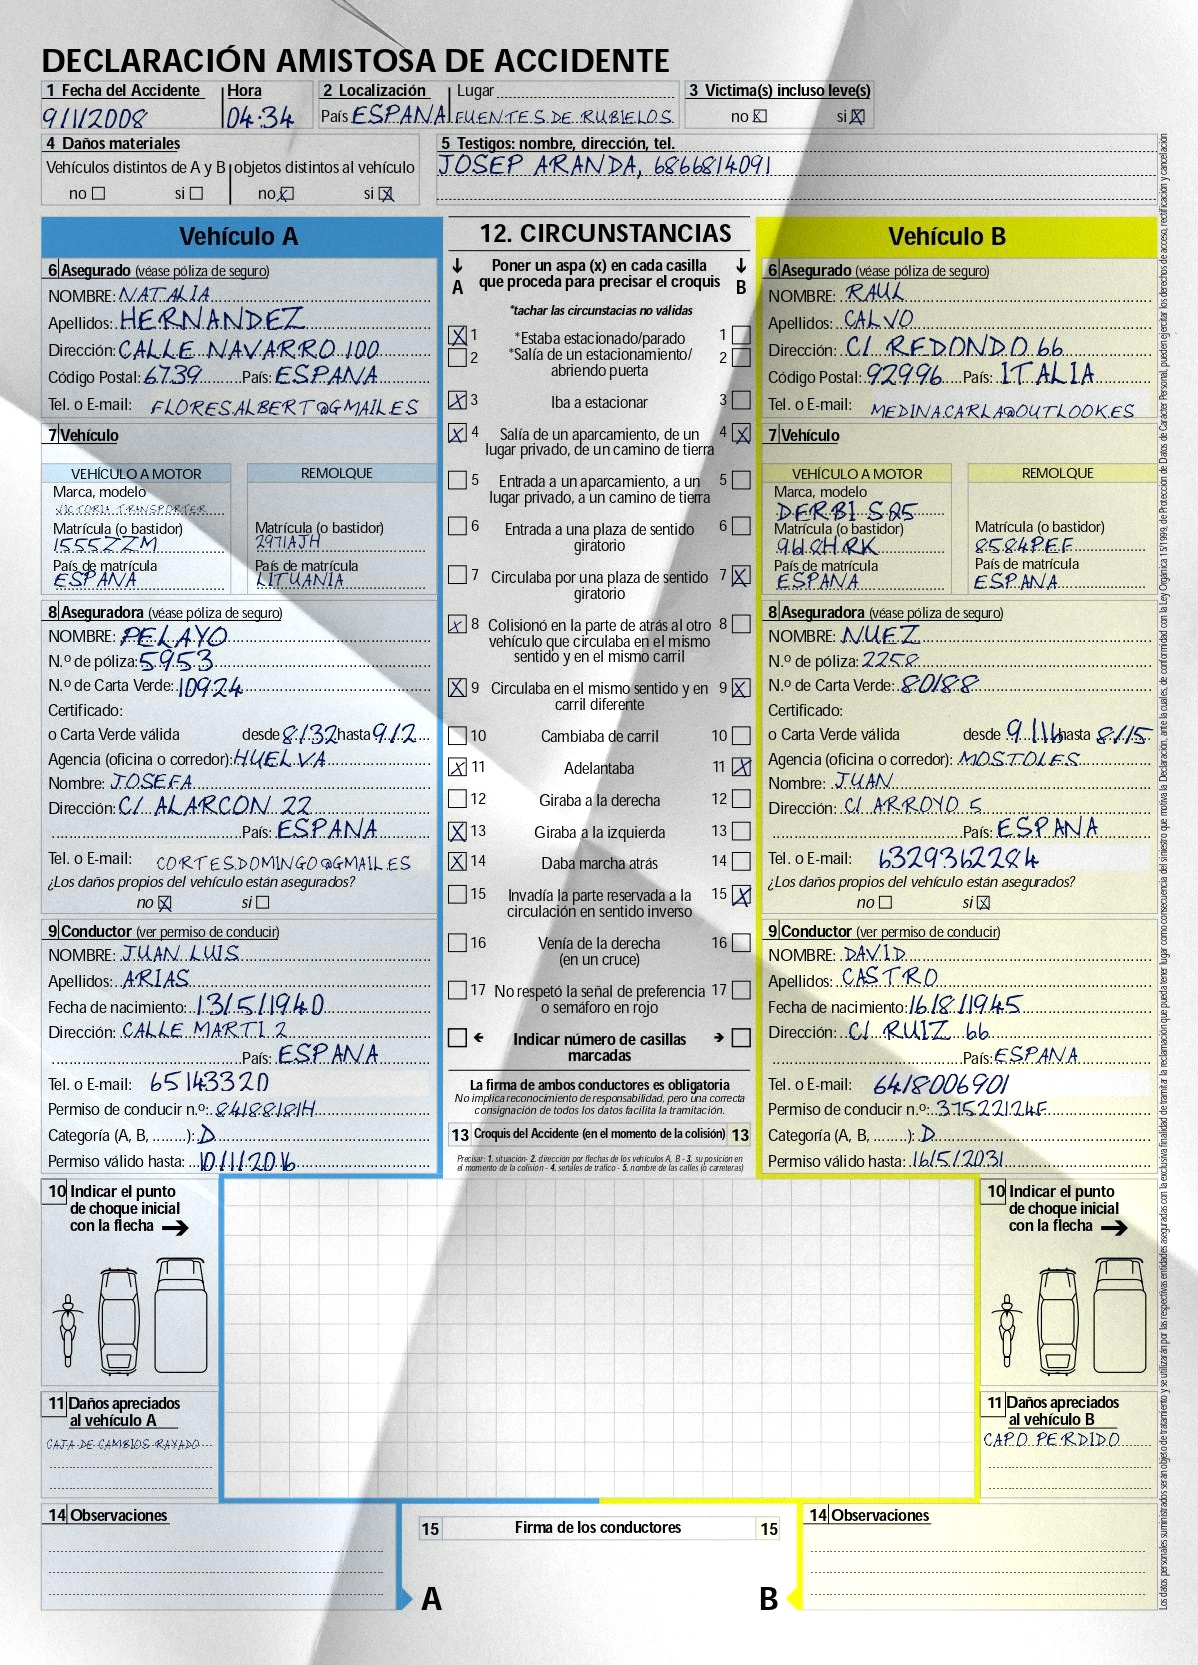 DECLARACIÓN AMISTOSA DE ACCIDENTE
1 Fecha del Accidente Hora 2 Localización Lugar 3 Victima(s) incluso leve(s)
9/1/2008 04:34 País ESPANA FUENTES DE RUBIELOS no si
4 Daños materiales
Vehículos distintos de A y B objetos distintos al vehículo
no si no si
5 Testigos: nombre, dirección, tel.
JOSEP ARANDA, 6866814091
Vehículo A
6 Asegurado (véase póliza de seguro)
NOMBRE: NATALIA
Apellidos: HERNANDEZ
Dirección: CALLE NAVARRO 100
Código Postal: 6739 País: ESPANA
Tel. o E-mail: FLORESALBERT@GMAIL.ES
7 Vehículo
VEHÍCULO A MOTOR REMOLQUE
Marca, modelo
VICTORIA TRANSPORTER
Matrícula (o bastidor) Matrícula (o bastidor)
1555ZZM 2971AJH
País de matrícula País de matrícula
ESPANA LITUANIA
8 Aseguradora (véase póliza de seguro)
NOMBRE: PELAYO
N.º de póliza: 5953
N.º de Carta Verde: 10924
Certificado:
o Carta Verde válida desde 8/32 hasta 9/2
Agencia (oficina o corredor): HUELVA
Nombre: JOSEFA
Dirección: C/ ALARCON 22
País: ESPANA
Tel. o E-mail: CORTESDOMINGO@GMAIL.ES
¿Los daños propios del vehículo están asegurados?
no si
9 Conductor (ver permiso de conducir)
NOMBRE: JUAN LUIS
Apellidos: ARIAS
Fecha de nacimiento: 13/5/1940
Dirección: CALLE MARTI 2
País: ESPANA
Tel. o E-mail: 65143320
Permiso de conducir n.º: 84188181H
Categoría (A, B, ........): D
Permiso válido hasta: 10/1/2016
12. CIRCUNSTANCIAS
A Poner un aspa (x) en cada casilla que proceda para precisar el croquis B
*tachar las circunstacias no válidas
1 *Estaba estacionado/parado 1
2 *Salía de un estacionamiento/ 2
abriendo puerta
3 Iba a estacionar 3
4 Salía de un aparcamiento, de un 4
lugar privado, de un camino de tierra
5 Entrada a un aparcamiento, a un 5
lugar privado, a un camino de tierra
6 Entrada a una plaza de sentido 6
giratorio
7 Circulaba por una plaza de sentido 7
giratorio
8 Colisionó en la parte de atrás al otro 8
vehículo que circulaba en el mismo
sentido y en el mismo carril
9 Circulaba en el mismo sentido y en 9
carril diferente
10 Cambiaba de carril 10
11 Adelantaba 11
12 Giraba a la derecha 12
13 Giraba a la izquierda 13
14 Daba marcha atrás 14
15 Invadía la parte reservada a la 15
circulación en sentido inverso
16 Venía de la derecha 16
(en un cruce)
17 No respetó la señal de preferencia 17
o semáforo en rojo
Indicar número de casillas
marcadas
La firma de ambos conductores es obligatoria
No implica reconocimiento de responsabilidad, pero una correcta
consignación de todos los datos facilita la tramitación.
13 Croquis del Accidente (en el momento de la colisión) 13
Precisar: 1. situación- 2. dirección por flechas de los vehículos A, B - 3. su posición en
el momento de la colisión - 4. señales de tráfico - 5. nombre de las calles (o carreteras)
Vehículo B
6 Asegurado (véase póliza de seguro)
NOMBRE: RAUL
Apellidos: CALVO
Dirección: C/ REDONDO 66
Código Postal: 92996 País: ITALIA
Tel. o E-mail: MEDINACARLA@OUTLOOK.ES
7 Vehículo
VEHÍCULO A MOTOR REMOLQUE
Marca, modelo
DERBI SQ5
Matrícula (o bastidor) Matrícula (o bastidor)
9618HRK 8584PEF
País de matrícula País de matrícula
ESPANA ESPANA
8 Aseguradora (véase póliza de seguro)
NOMBRE: NUEZ
N.º de póliza: 2258
N.º de Carta Verde: 80188
Certificado:
o Carta Verde válida desde 9/16 hasta 8/15
Agencia (oficina o corredor): MOSTOLES
Nombre: JUAN
Dirección: C/ ARROYO 5
País: ESPANA
Tel. o E-mail: 6329362284
¿Los daños propios del vehículo están asegurados?
no si
9 Conductor (ver permiso de conducir)
NOMBRE: DAVID
Apellidos: CASTRO
Fecha de nacimiento: 16/8/1945
Dirección: C/ RUIZ 66
País: ESPANA
Tel. o E-mail: 6418006901
Permiso de conducir n.º: 37522124F
Categoría (A, B, ........): D
Permiso válido hasta: 16/5/2031
10 Indicar el punto
de choque inicial
con la flecha
11 Daños apreciados
al vehículo A
CAJA DE CAMBIOS RAYADO
10 Indicar el punto
de choque inicial
con la flecha
11 Daños apreciados
al vehículo B
CAPO PERDIDO
14 Observaciones
15 Firma de los conductores 15
A B
14 Observaciones
Los datos personales suministrados serán objeto de tratamiento y se utilizarán por las respectivas entidades aseguradas con la exclusiva finalidad de tramitar la reclamación que pueda tener lugar como consecuencia del siniestro que motiva la Declaración, ante la cuales, de conformidad con la Ley Orgánica 15/1999, de Protección de Datos de Carácter Personal, pueden ejercitar los derechos de acceso, rectificación y cancelación